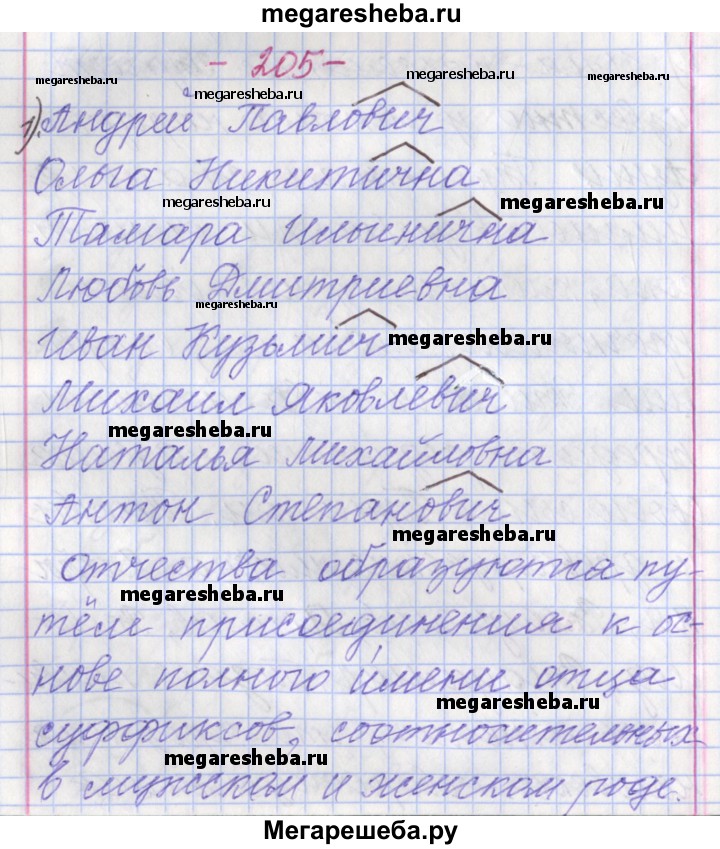 megaresheba.ru
- 205 -
megaresheba.ru megaresheba.ru megaresheba.ru megaresheba.ru
1). Андрей Павлович
Ольга Никитична
megaresheba.ru megaresheba.ru
Тамара Ильинична
Любовь Дмитриевна
megaresheba.ru
Иван Кузьмич megaresheba.ru
Михаил Яковлевич
megaresheba.ru
Наталья Михайловна
Антон Степанович
megaresheba.ru
Отчества образуются пу-
megaresheba.ru
тём присоединения к ос-
нове полного имени отца
megaresheba.ru
суффиксов, соотносительных
megaresheba.ru
в мужском и женском роде.
Мегарешеба.ру